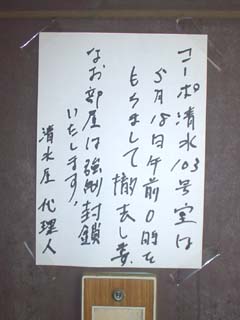 コーポ清水103号室は
5月18日午前0時を
もちまして撤去し委
なお部屋は強制封鎖
いたします。
清水屋 代理人